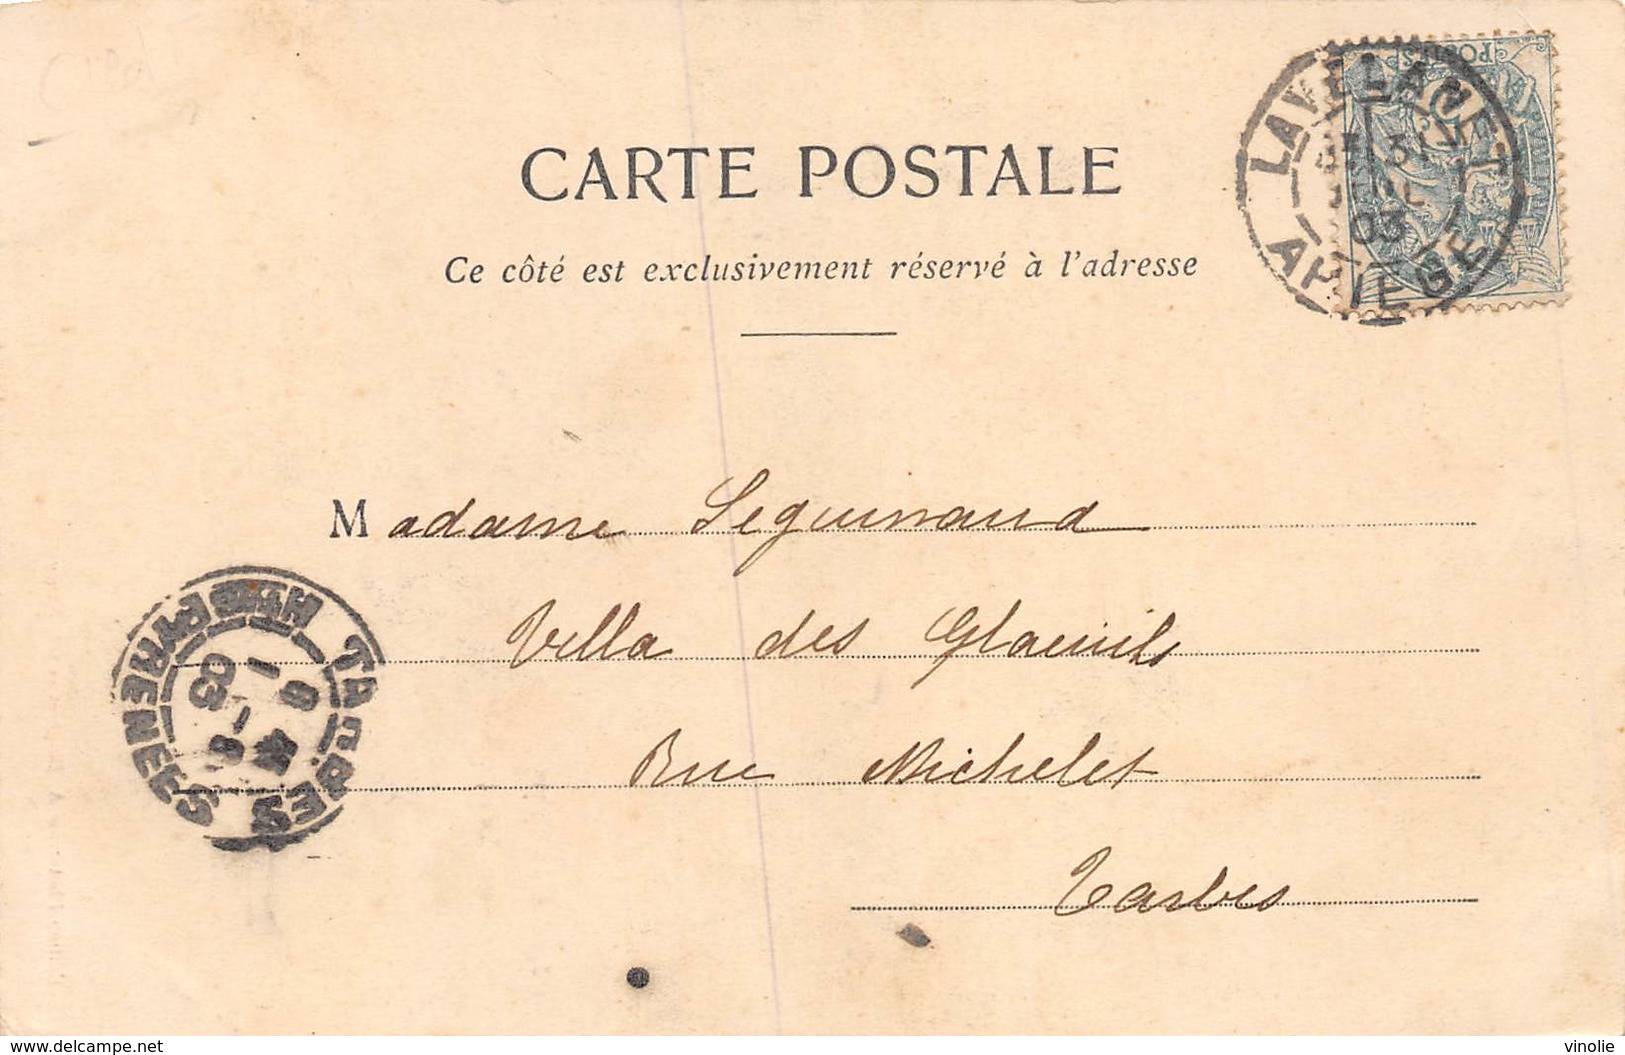 CARTE POSTALE
Ce côté est exclusivement réservé à l'adresse
LAVELANET
03
ARIEGE
POSTES
Madame Seguinaud
Villa des
Rue Michelet
Tarbes
TARBES
HTES PYRENEES
03
delcampe.net
vinolie